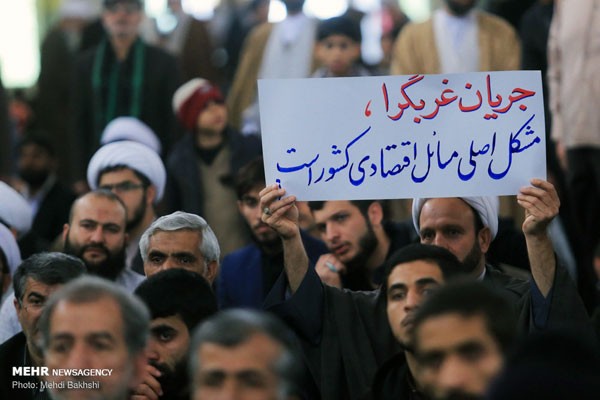 جریان غربگرا،
مشکل اصلی مسائل اقتصادی کشور است.
MEHR NEWSAGENCY
Photo: Mehdi Bakhshi